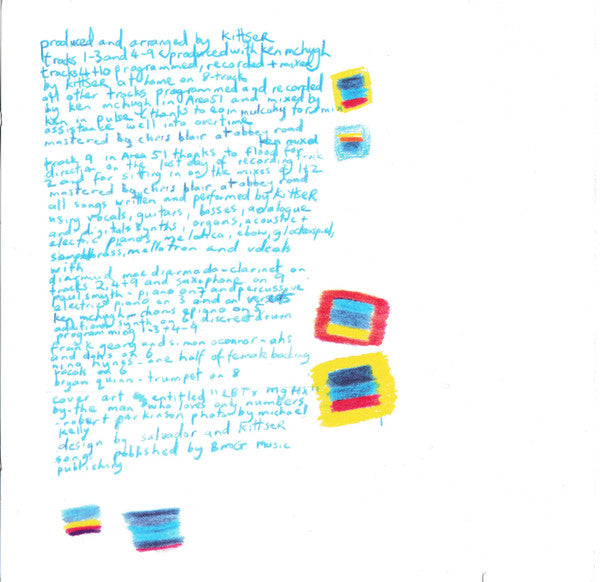 produced and arranged by KiTTSER
tracks 1-3 and 4-9 c/produced with ken mchugh
tracks 4+10 programmed, recorded + mixed
by KiTTSER at home on 8-track
all other tracks programmed and recorded
by ken mchugh in Area 51 and mixed by
ken in pulse thanks to eoin mulcahy for
assistance well into overtime
mastered by chris blair at abbey road
ken mixed
track 9 in Area 51 thanks to flood for track
direction on the last day of recording
2 and for sitting in on the mixes of 1+2
mastered by chris blair, at abbey road
all songs written and performed by KiTTSER
using vocals, guitars, basses, analogue
and digital synths, organs, acoustic +
electric pianos, melodica, ebow, glockenspiel,
brass, mellotron and vocals
with
diarmuid macdiarmada - clarinet on
tracks 2, 4+9 and saxophone on 9
paul smyth - piano on 7 and percussive
electric piano on 3 and on
ken mchugh - chorus epiano on 5
additional synth on 6 discreet drum
programming 1-3+4-9
frank geary and simon oconnor - ahs
and on 6
nina hynes - one half of female backing
vocals on 6
bryan quinn - trumpet on 8
cover art entitled "2BTx MgHx"
by - the man who loves only numbers
- robert parkinson photo by michael
kelly
design by salvador and KiTTSER
songs published by BMG Music
publishing